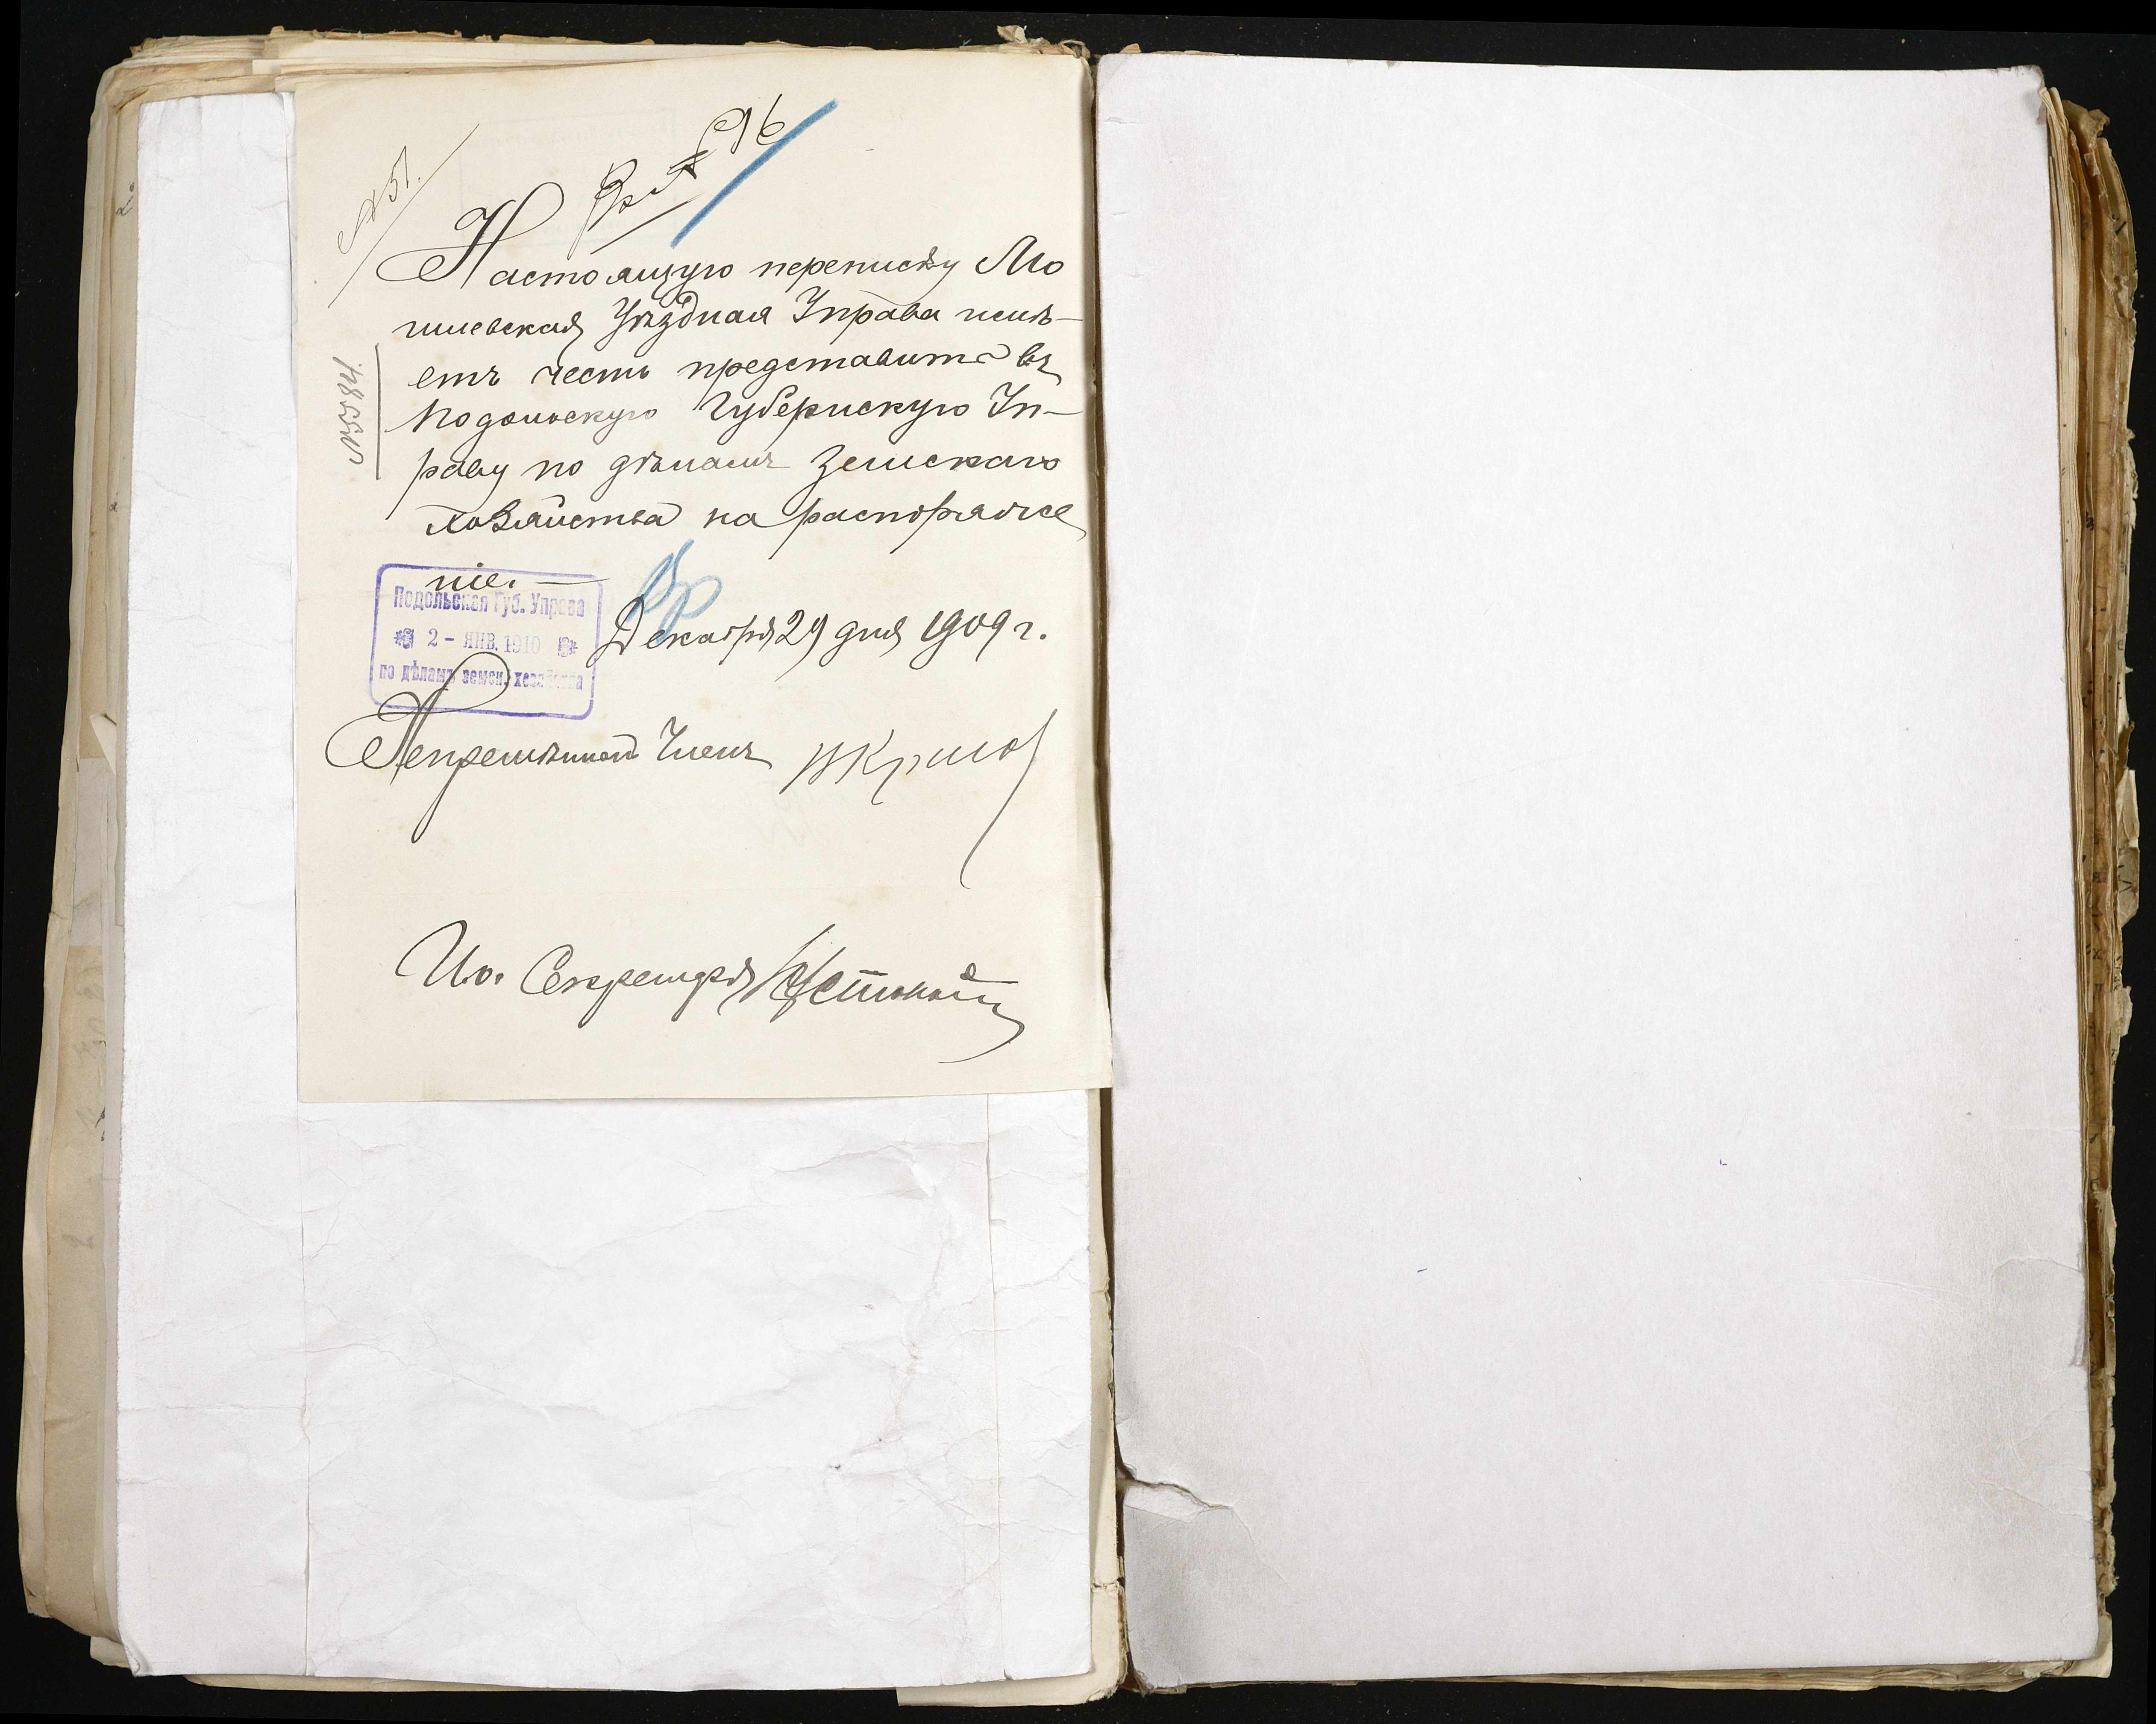 № 51.
Настоящую переписку Мо
гилевская Уѣздная Управа имѣ-
етъ честь представить въ
Подольскую Губернскую Уп-
раву по дѣламъ Земскаго
Хозяйства на распоряже
ніе. —
Подольская Губ. Управа
2 - ЯНВ. 1910
по дѣламъ земск. хозяйства
Декабря 29 дня 1909 г.
Непремѣнный Членъ
И.о. Секретаря